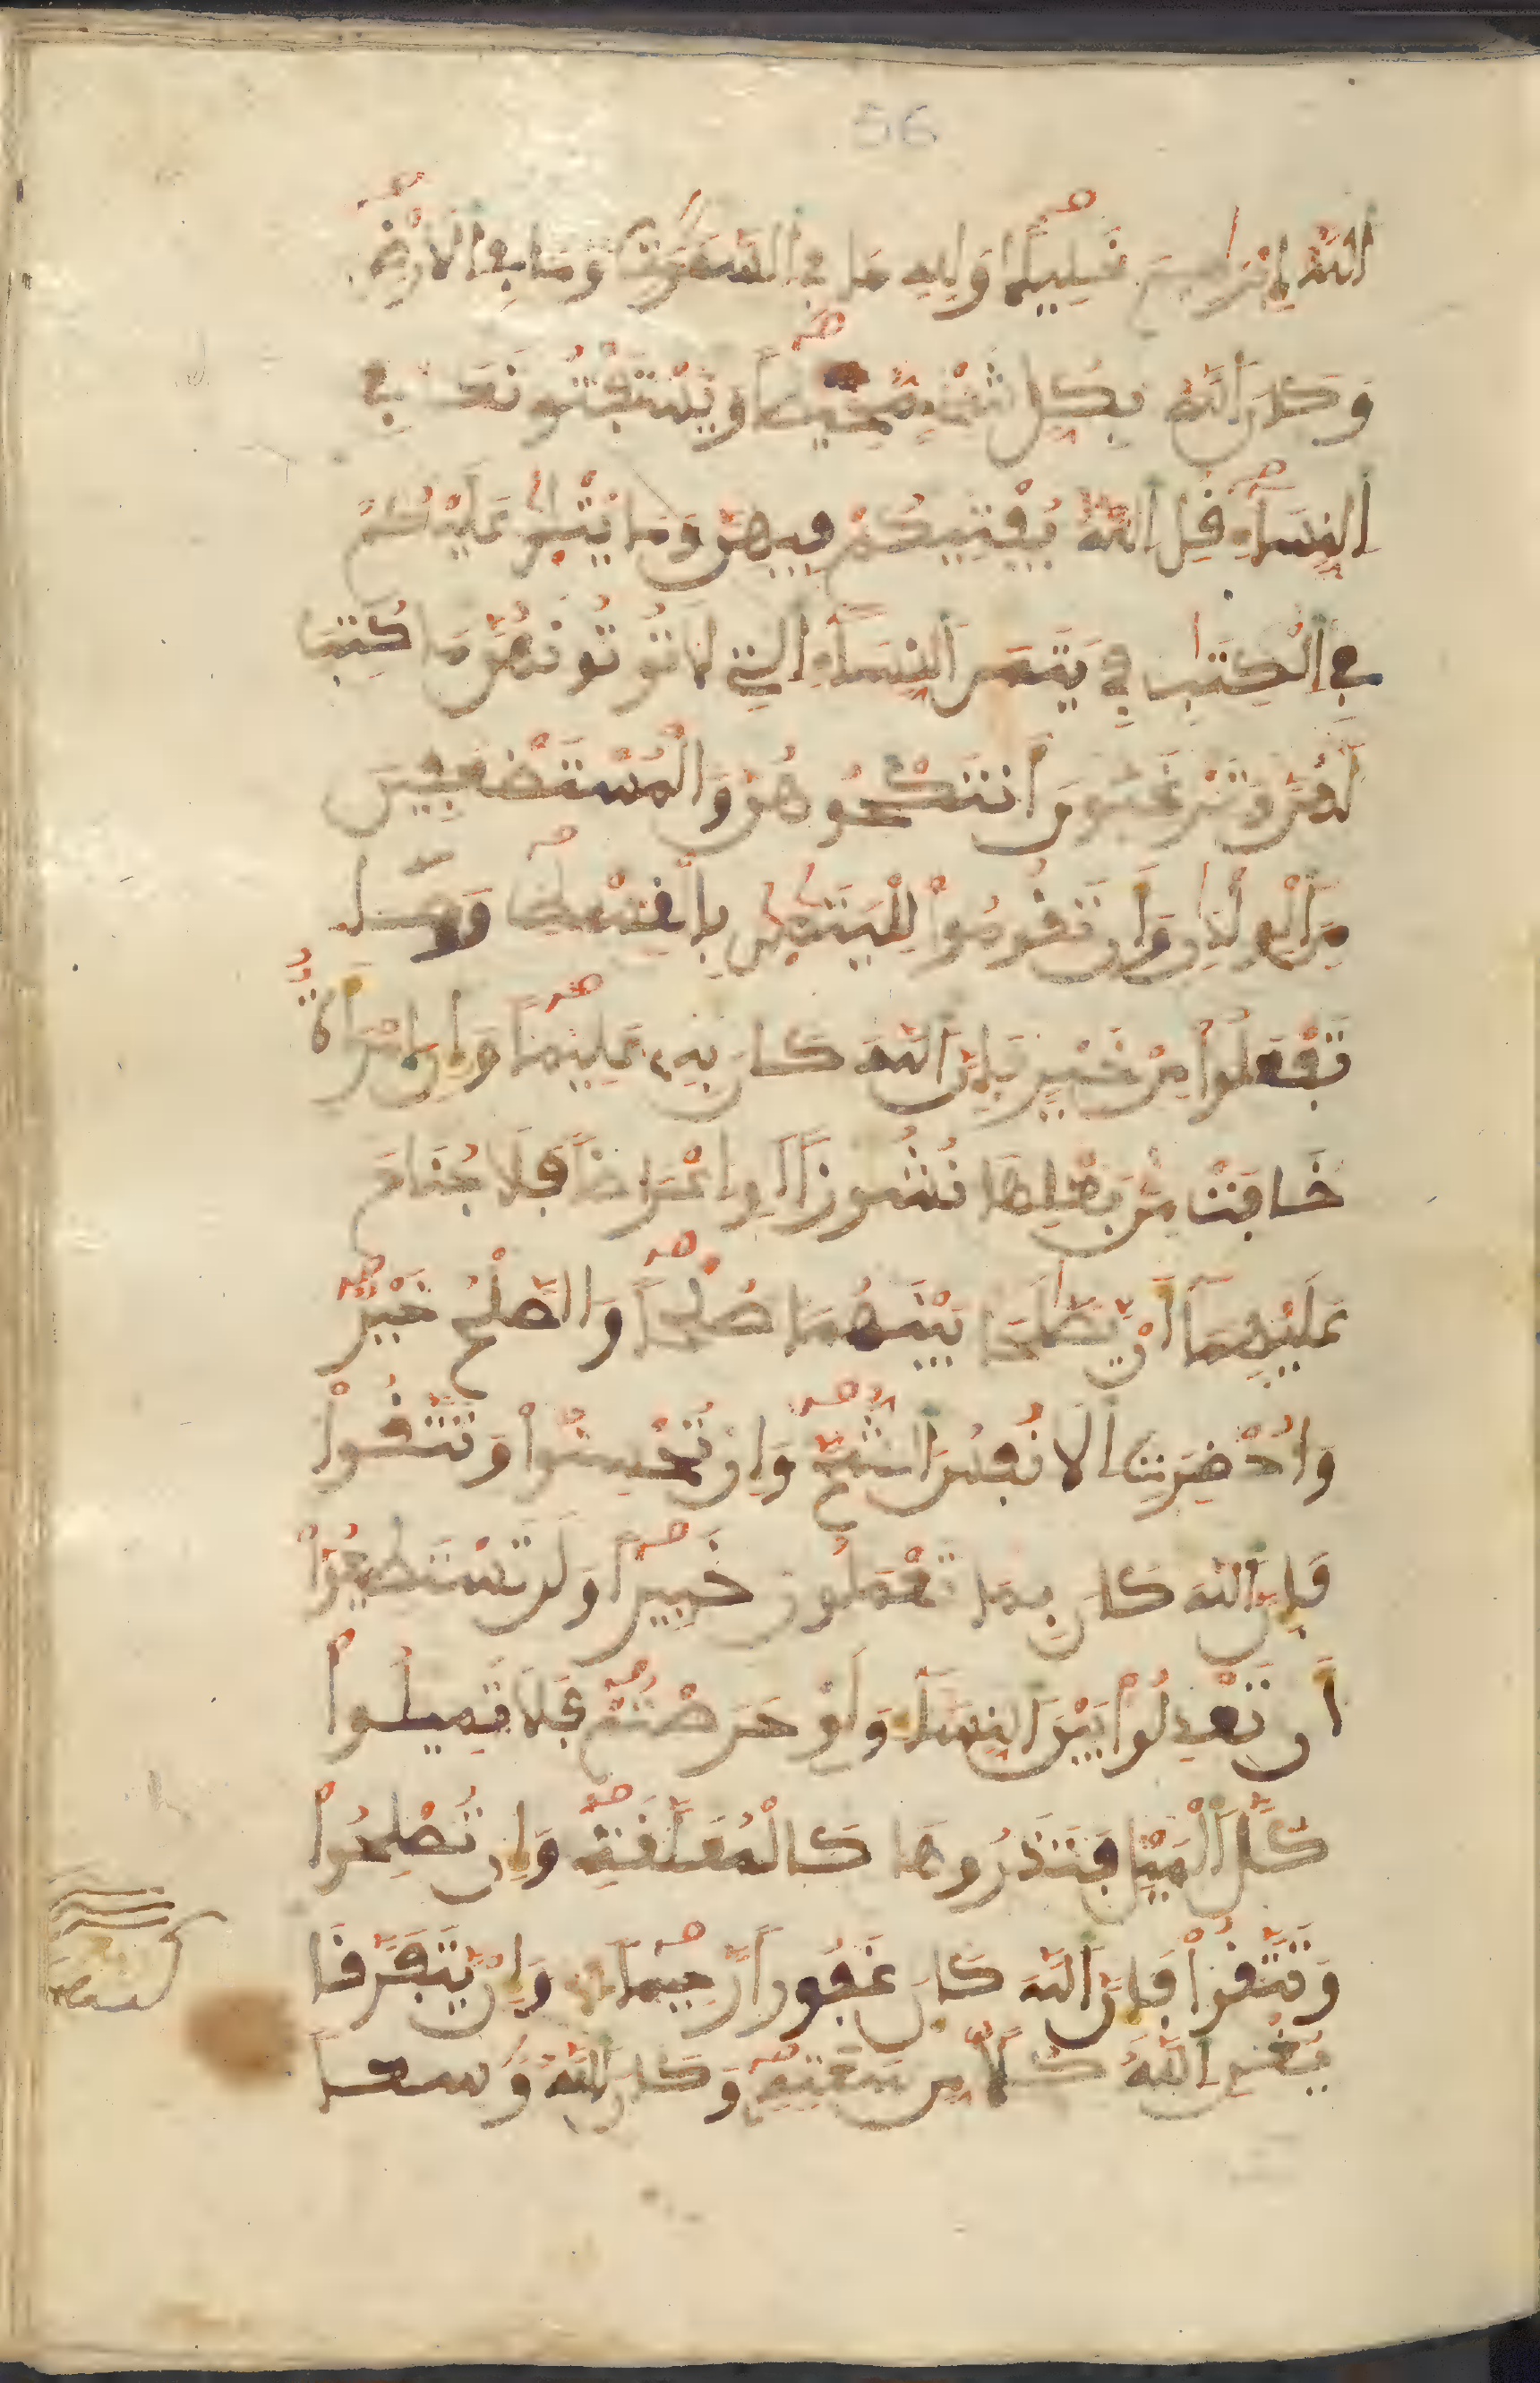 56
اَللَّهُ إِبْرَٰهِيمَ خَلِيلًا وَلِلهِ مَا فِي اَلسَّمَٰوَٰتِ وَمَا فِي اِلَارْضِ
وَكَانَ اَللَّهُ بِكُلِّ شَيْءٍ مُّحِيطًا وَيَسْتَفْتُونَكَ فِي
اِلنِّسَآءِ قُلِ اِللَّهُ يُفْتِيكُمْ فِيهِنَّ وَمَا يُتْلَىٰ عَلَيْكُمْ
فِي اِلْكِتَٰبِ فِي يَتَٰمَى اَلنِّسَآءِ اِلَّتِي لَا تُوتُونَهُنَّ مَا كُتِبَ
لَهُنَّ وَتَرْغَبُونَ أَن تَنكِحُوهُنَّ وَالْمُسْتَضْعَفِينَ
مِنَ اَلْوِلْدَٰنِ وَأَن تَقُومُواْ لِلْيَتَٰمَىٰ بِالْقِسْطِ وَمَا
تَفْعَلُواْ مِنْ خَيْرٍ فَإِنَّ اَللَّهَ كَانَ بِهِۦ عَلِيمًا وَإِنِ اِمْرَأَةٌ
خَافَتْ مِنۢ بَعْلِهَا نُشُوزًا اَوِ اِعْرَاضًا فَلَا جُنَاحَ
عَلَيْهِمَآ أَنْ يَّصَّٰلَحَا بَيْنَهُمَا صُلْحًا وَالصُّلْحُ خَيْرٌ
وَأُحْضِرَتِ اِلَانفُسُ اُلشُّحَّ وَإِن تُحْسِنُواْ وَتَتَّقُواْ
فَإِنَّ اَللَّهَ كَانَ بِمَا تَعْمَلُونَ خَبِيرًا وَلَن تَسْتَطِيعُوٓاْ
أَن تَعْدِلُواْ بَيْنَ اَلنِّسَآءِ وَلَوْ حَرَصْتُمْ فَلَا تَمِيلُواْ
كُلَّ اَلْمَيْلِ فَتَذَرُوهَا كَالْمُعَلَّقَةِ وَإِن تُصْلِحُواْ
وَتَتَّقُواْ فَإِنَّ اَللَّهَ كَانَ غَفُورًا رَّحِيمًا وَإِنْ يَّتَفَرَّقَا
يُغْنِ اِللَّهُ كُلًّا مِّن سَعَتِهِ وَكَانَ اَللَّهُ وَٰسِعًا